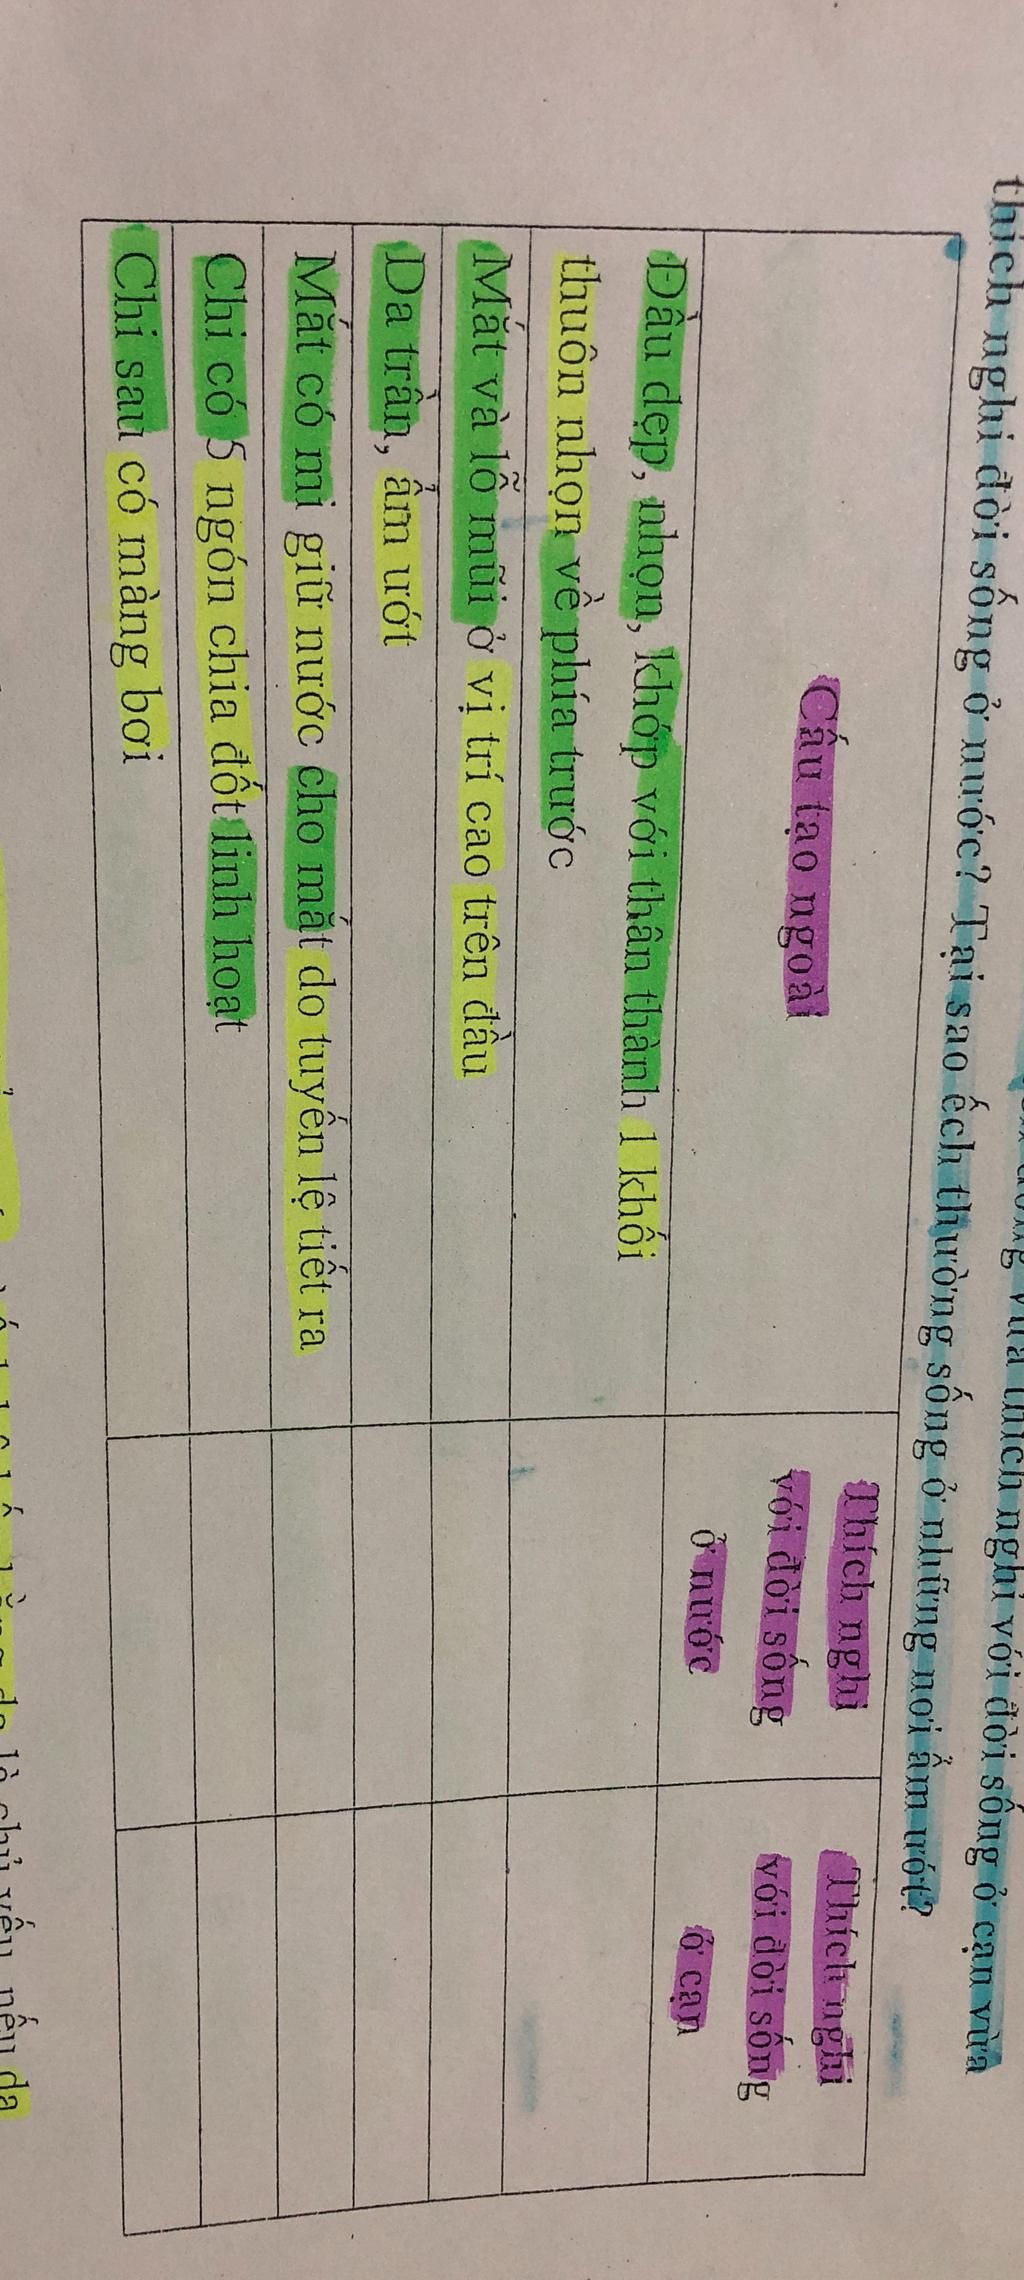 vừa thích nghi với đời sống ở cạn vừa
thích nghi đời sống ở nước? Tại sao ếch thường sống ở những nơi ẩm ướt?
Cấu tạo ngoài
Thích nghi
với đời sống
ở nước
Thích nghi
với đời sống
ở cạn
Đầu dẹp, nhọn, khớp với thân thành 1 khối
thuôn nhọn về phía trước
Mắt và lỗ mũi ở vị trí cao trên đầu
Da trần, ẩm ướt
Mắt có mi giữ nước cho mắt do tuyến lệ tiết ra
Chi có 5 ngón chia đốt linh hoạt
Chi sau có màng bơi
da là chủ yếu, nếu da